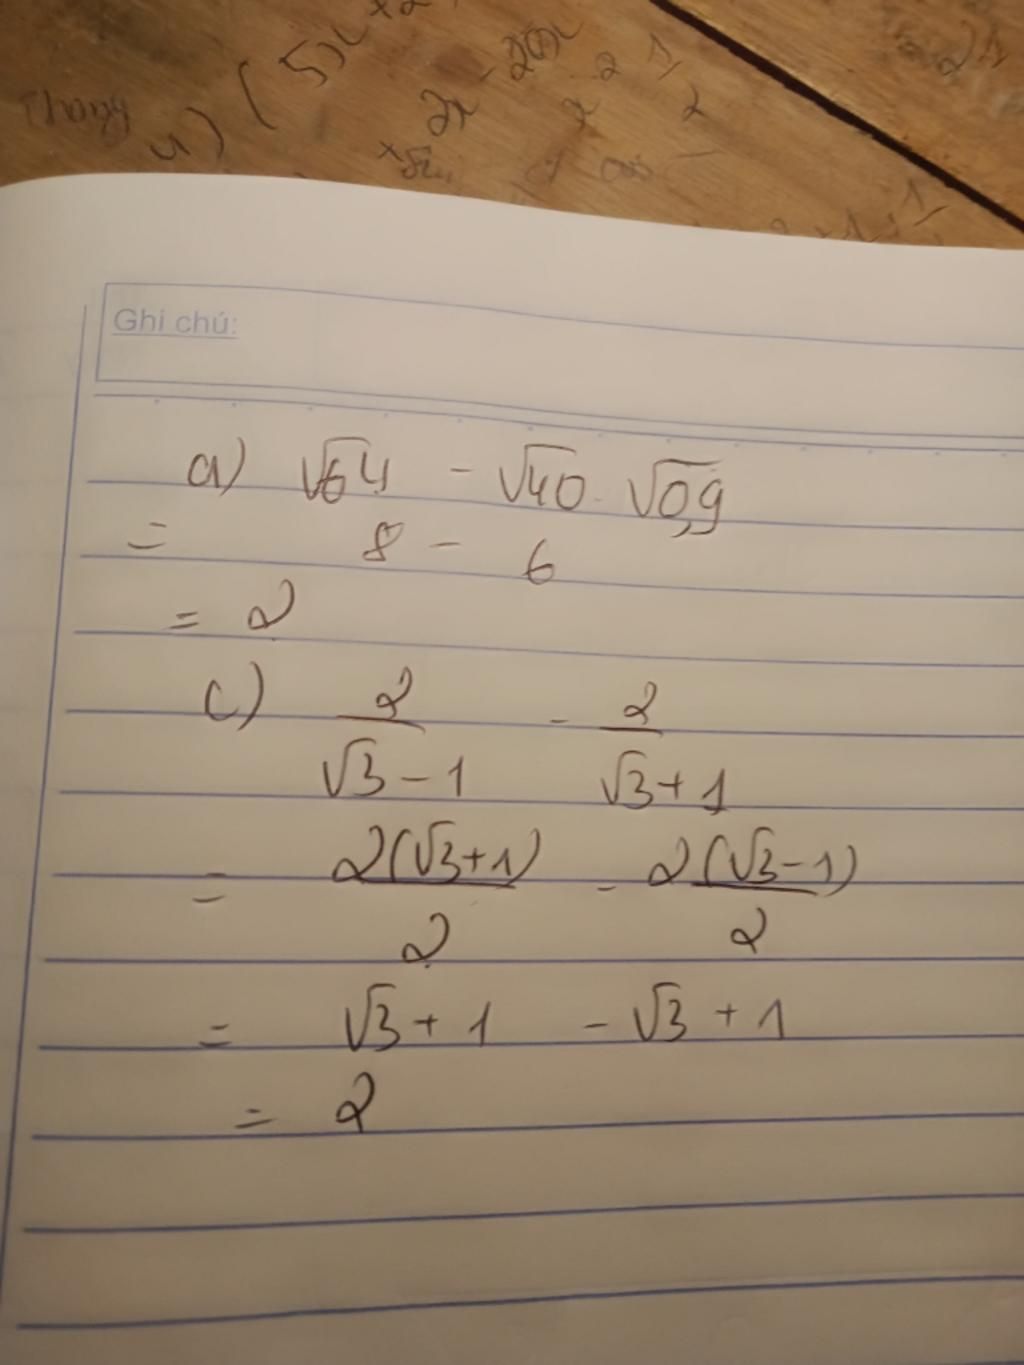 Ghi chú:
a) √64 - √40 . √0,9
= 8 - 6
= 2
c) 2/(√3 - 1) - 2/(√3 + 1)
= 2(√3+1)/2 - 2(√3-1)/2
= √3 + 1 - √3 + 1
= 2